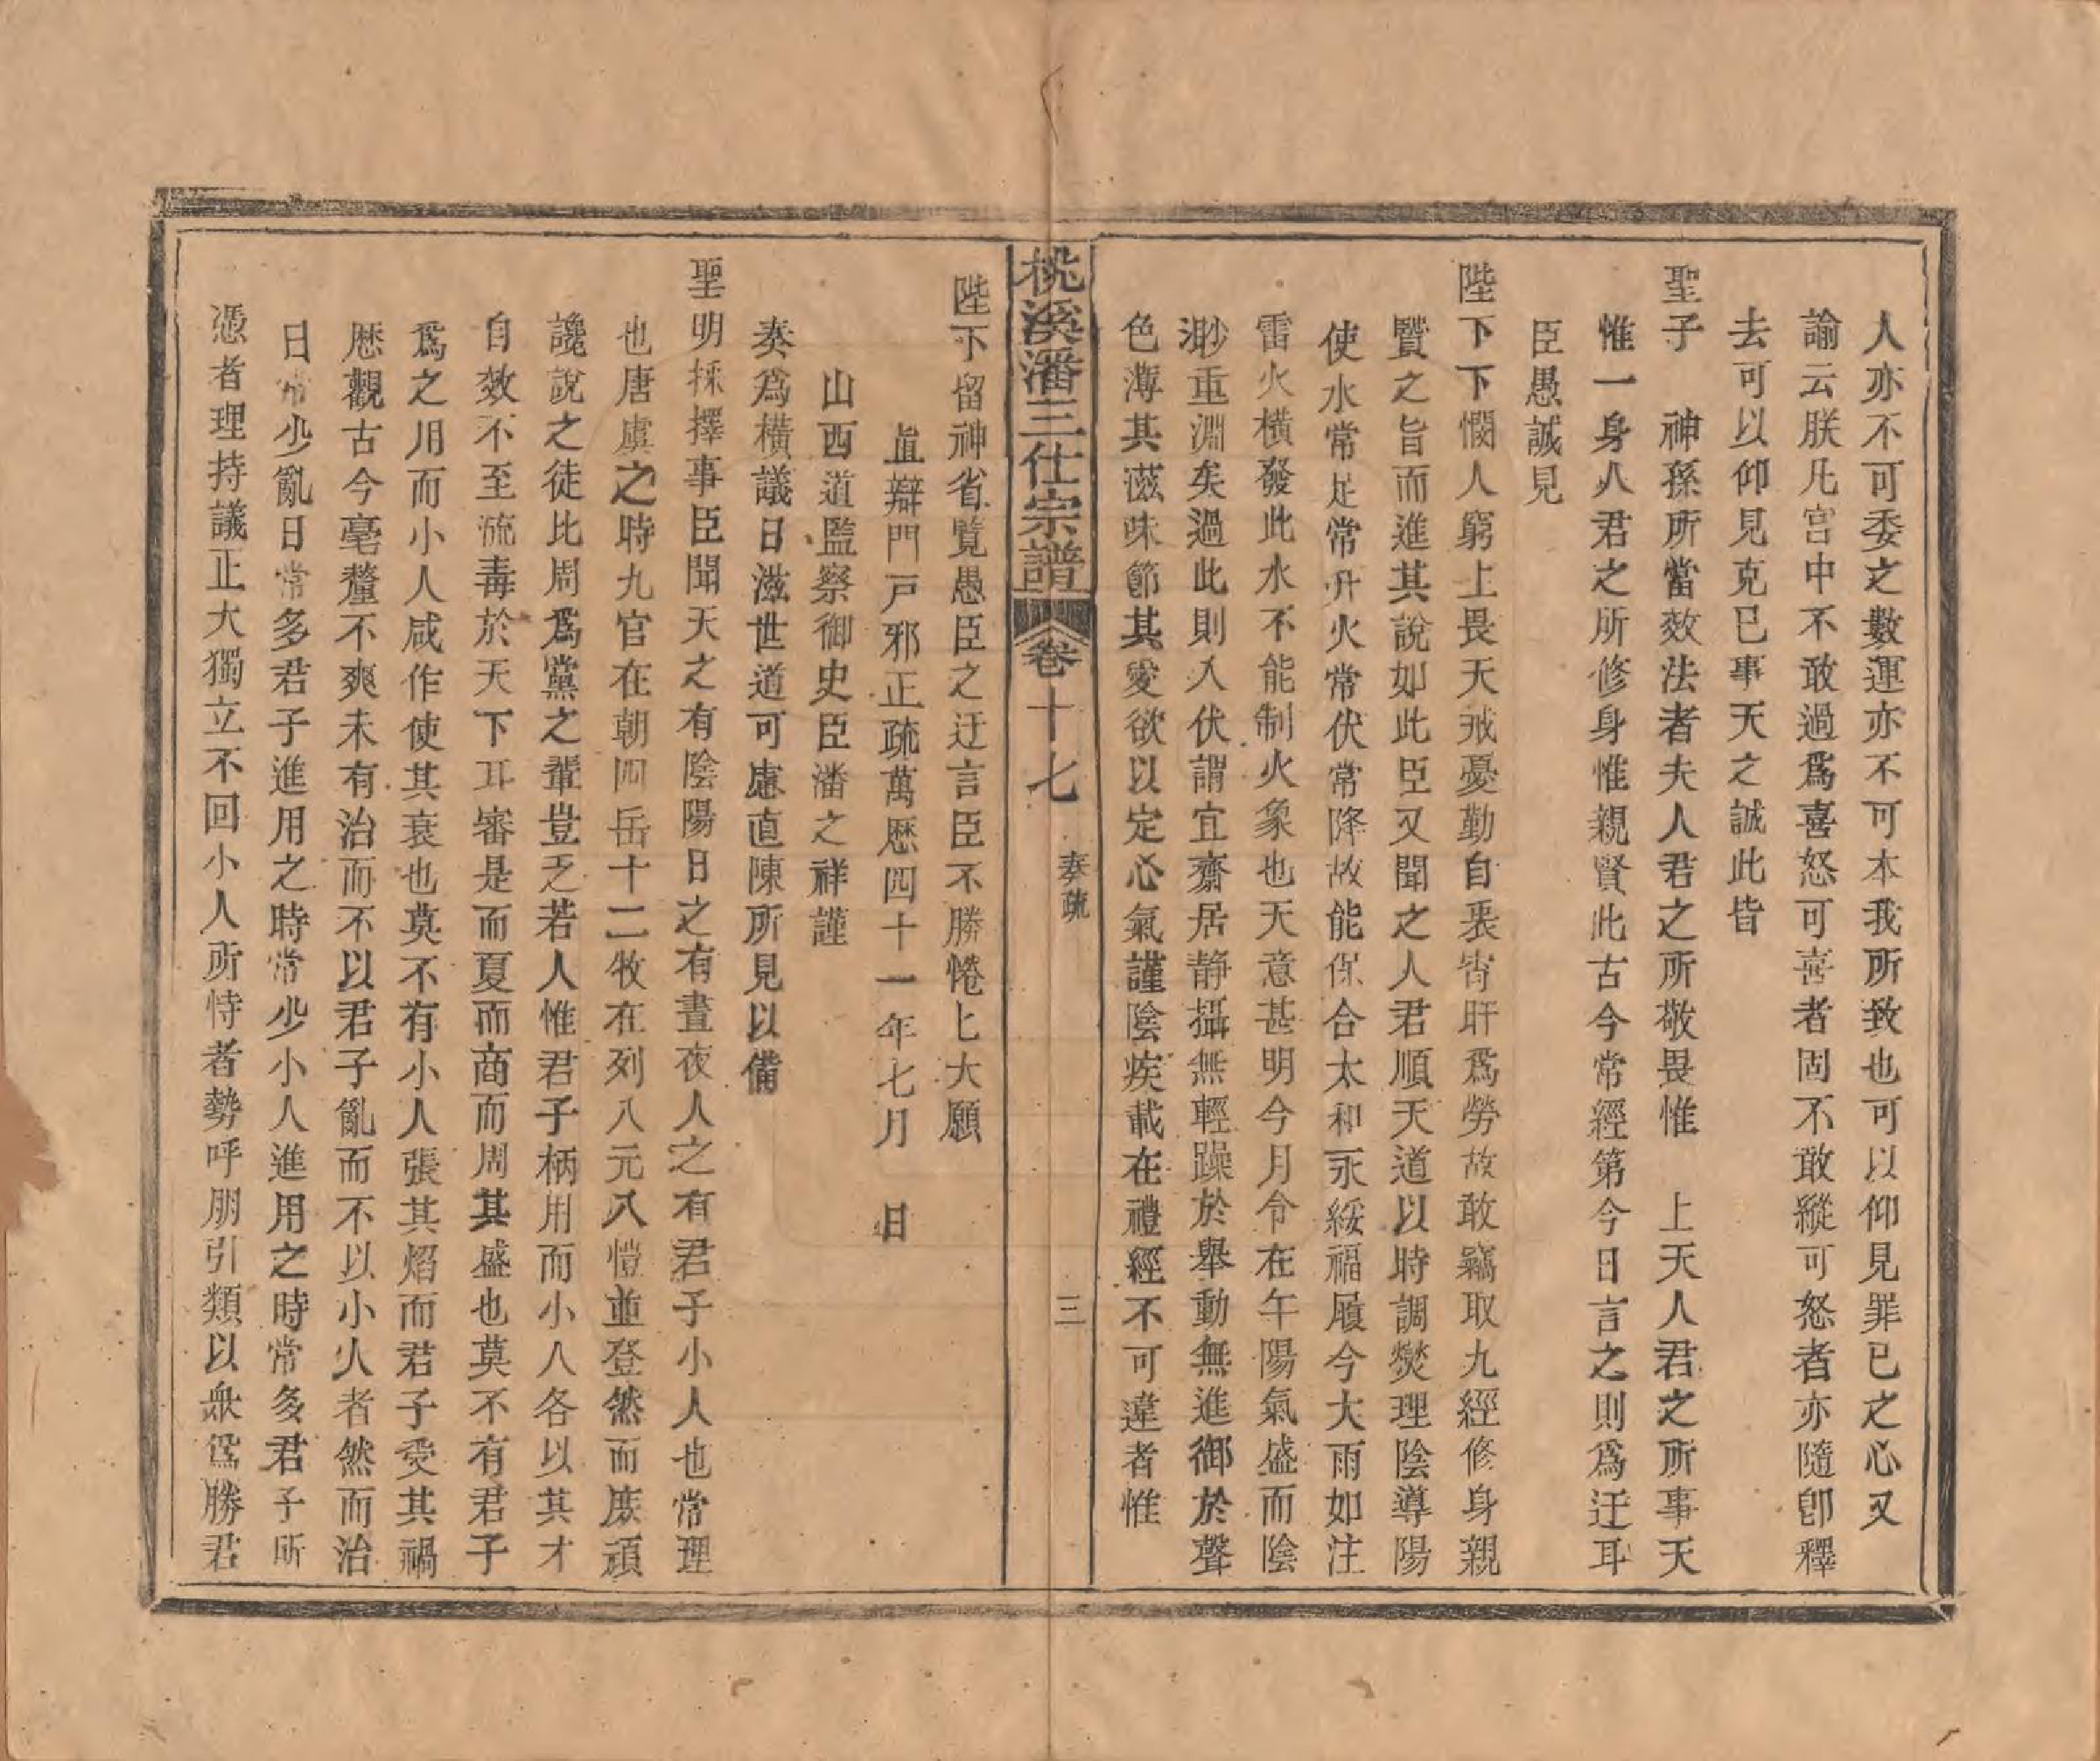 人亦不可委之數運亦不可本我所致也可以仰見罪已之心又
諭云朕凡宫中不敢過爲喜怒可喜者固不敢縱可怒者亦隨卽釋
去可以仰見克已事天之誠此皆
聖子　神孫所當效法者夫人君之所敬畏惟　上天人君之所事天
惟一身人君之所修身惟親賢此古今常經第今日言之則爲迂耳
臣愚誠見
陛下下憫人窮上畏天戒憂勤自裴宵肝爲勞故敢竊取九經修身親
賢之旨而進其說如此臣又聞之人君順天道以時調爕理陰導陽
使水常足常升火常伏常降故能保合太和永綏福履今大雨如注
雷火橫發此水不能制火象也天意甚明今月令在午陽氣盛而陰
渺重淵矣過此則入伏謂宜齋居静攝無輕躁於舉動無進御於聲
色薄其滋味節其愛欲以定心氣謹陰疾載在禮經不可違者惟
桃溪潘三仕宗譜　卷十七　奏疏　三
陛下留神省覽愚臣之迂言臣不勝惓匕大願
直辯門戸邪正疏萬歷四十一年七月　日
山西道監察御史臣潘之祥謹
奏爲橫議日滋世道可慮直陳所見以備
聖明採擇事臣聞天之有陰陽日之有晝夜人之有君子小人也常理
也唐虞之時九官在朝四岳十二牧在列八元八愷並登然而庶頑
讒說之徒比周爲黨之輩豈乏若人惟君子柄用而小人各以其才
自效不至流毒於天下耳審是而夏而商而周其盛也莫不有君子
爲之用而小人咸作使其衰也莫不有小人張其焰而君子受其禍
歷觀古今毫釐不爽未有治而不以君子亂而不以小人者然而治
日常少亂日常多君子進用之時常少小人進用之時常多君子所
憑者理持議正大獨立不回小人所恃者勢呼朋引類以衆爲勝君